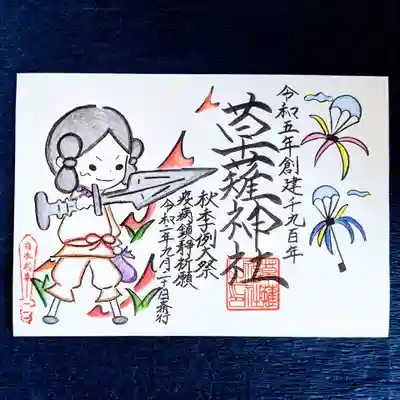 令和五年創建千九百年
草薙神社
秋季例大祭
疫病鎮静祈願
令和二年九月二十日奉拝
日本武尊